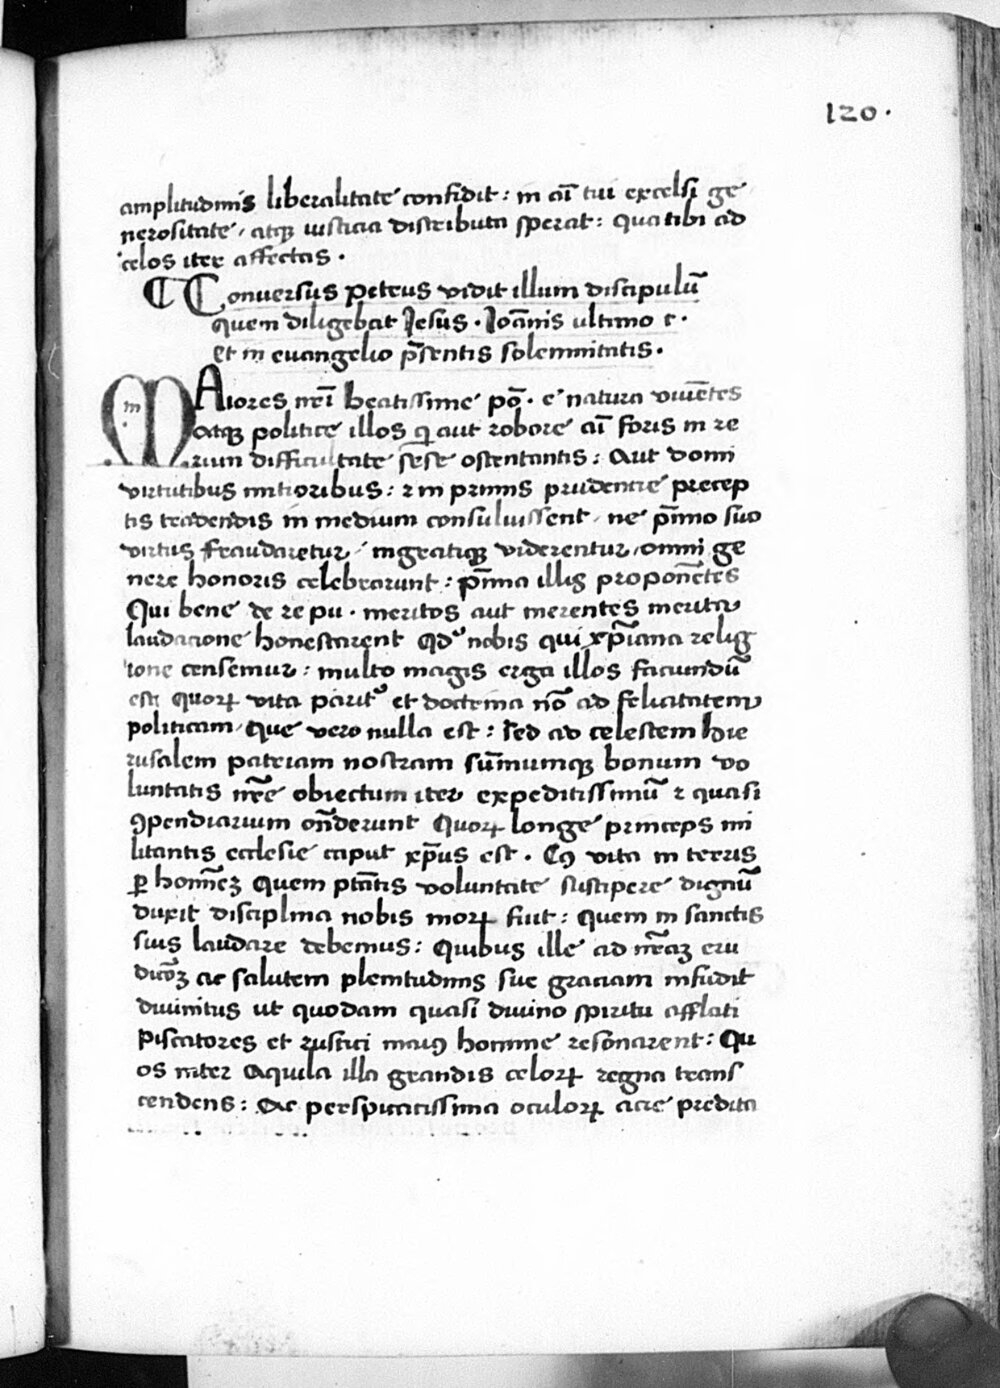 120.
amplitudinis liberalitate confidit: in ai᷑ tui excelsi ge
nerositate, atqꝫ iusticia distributa sperat: qua tibi ad
celos iter affectas.
Conuersus Petrus vidit illum discipulū
quem diligebat Jesus. Joānis ultimo c.
et in euangelio p̄sentis solemnitatis.
MAiores nr̄i beatissime pō. e natura viuētes
atqꝫ politice illos q aut robore aī foris in re
rum difficultate sese ostentantis: Aut domi
virtutibus mitioribus: ⁊ in primis prudentie precep
tis tradendis in medium consuluissent, ne p̄mio suo
virtus fraudaretur, ingratiqꝫ viderentur, omni ge
nere honoris celebrarunt: p̄mia illis proponētes
Qui bene de re pu. meritos aut merentes merita
laudacione honestarent Qd᷒ nobis qui xp̄iana relig
ione censemur: multo magis erga illos faciundū
est quoꝝ vita parit᷒ et doctrina nō ad felicitatem
politicam, Que vero nulla est: sed ad celestem hie
rusalem patriam nostram sūmumqꝫ bonum vo
luntatis nr̄e obiectum iter expeditissimū ⁊ quasi
ꝯpendiarium on̄derunt Quoꝝ longe princeps mi
litantis ecclesie caput xp̄us est. Cꝰ vita in terris
ꝑ hominēꝫ Quem ptātis voluntate suscipere dignū
duxit disciplina nobis moꝝ fuit: Quem in sanctis
suis laudare debemus: Quibus ille ad nr̄aꝫ eru
dicōꝫ ac salutem plenitudinis sue graciam infudit
diuinitus ut quodam quasi diuino spiritu afflati
Piscatores et rustici maiꝰ homine resonarent: Qu
os inter Aquila illa grandis celoꝝ regna trans
cendens: Ac perspicatissima oculoꝝ acie predita